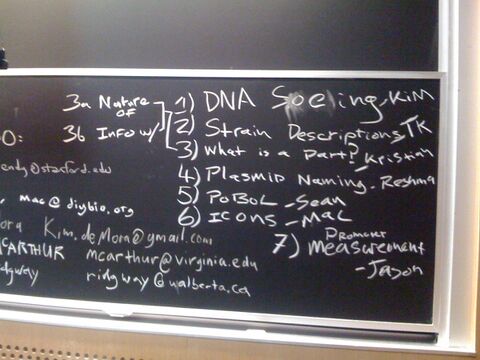 1) DNA ing, KIM
2) Strain Descriptions, TK
3) What is a Part? - Kristian
4) Plasmid Naming - Reshma
5) POBOL - Sean
6) ICONS - Mac
7) Promoter
measurement
- Jason
3a Nature
OF
3b Info w/
O:
endy@stanford.edu
mac@diybio.org
ora Kim.deMora@gmail.com
CARTHUR mcarthur@virginia.edu
dgway ridgway@ualberta.ca